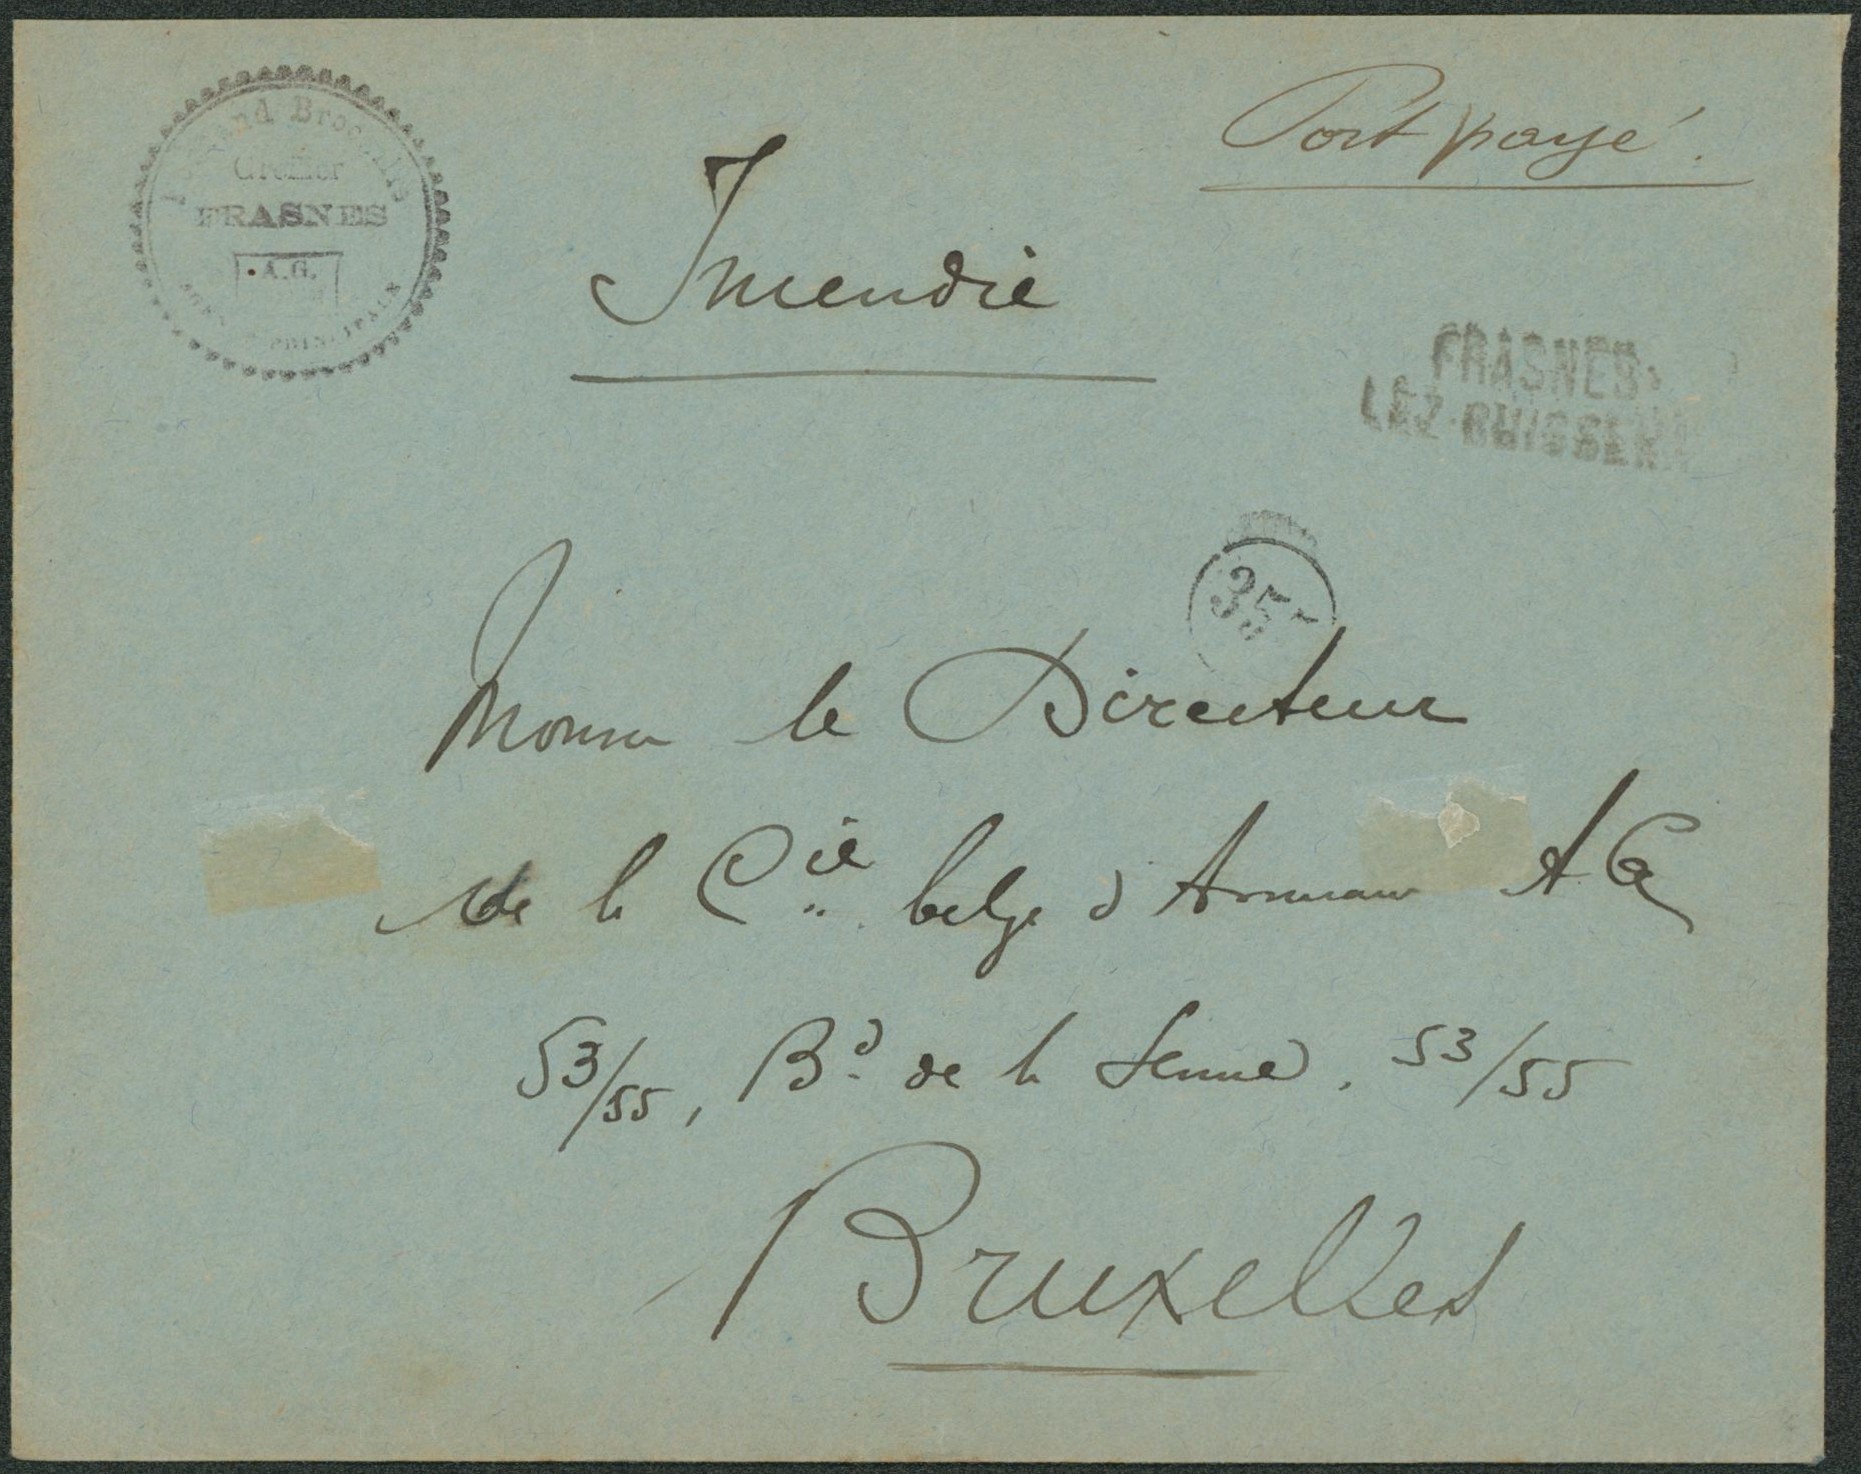 Port payé.
Greffier
FRASNES
A.G.
PRINCIPAUX
Incendie
FRASNES-
LEZ-BUISSENAL
35
le Directeur
de la Cie belge d'Assurances A G
53/55, Bd de la Senne. 53/55
Bruxelles